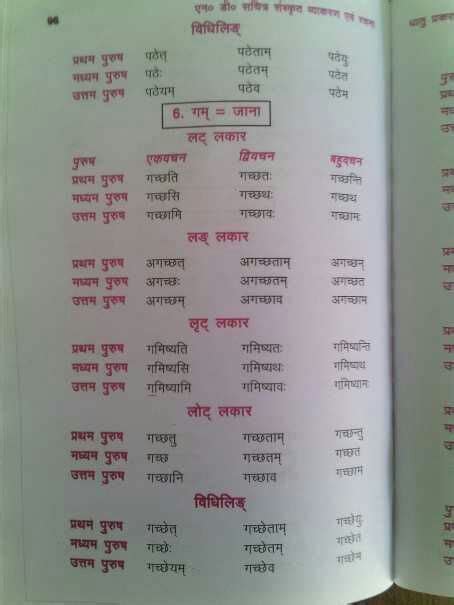 96 एन० डी० सचित्र संस्कृत व्याकरण एवं रचना
विधिलिङ्
प्रथम पुरुष पठेत् पठेताम् पठेयुः
मध्यम पुरुष पठेः पठेतम् पठेत
उत्तम पुरुष पठेयम् पठेव पठेम
6. गम् = जाना
लट् लकार
पुरुष एकवचन द्विवचन बहुवचन
प्रथम पुरुष गच्छति गच्छतः गच्छन्ति
मध्यम पुरुष गच्छसि गच्छथः गच्छथ
उत्तम पुरुष गच्छामि गच्छावः गच्छामः
लङ् लकार
प्रथम पुरुष अगच्छत् अगच्छताम् अगच्छन्
मध्यम पुरुष अगच्छः अगच्छतम् अगच्छत
उत्तम पुरुष अगच्छम् अगच्छाव अगच्छाम
लृट् लकार
प्रथम पुरुष गमिष्यति गमिष्यतः गमिष्यन्ति
मध्यम पुरुष गमिष्यसि गमिष्यथः गमिष्यथ
उत्तम पुरुष गमिष्यामि गमिष्यावः गमिष्यामः
लोट् लकार
प्रथम पुरुष गच्छतु गच्छताम् गच्छन्तु
मध्यम पुरुष गच्छ गच्छतम् गच्छत
उत्तम पुरुष गच्छानि गच्छाव गच्छाम
विधिलिङ्
प्रथम पुरुष गच्छेत् गच्छेताम् गच्छेयुः
मध्यम पुरुष गच्छेः गच्छेतम् गच्छेत
उत्तम पुरुष गच्छेयम् गच्छेव गच्छेम